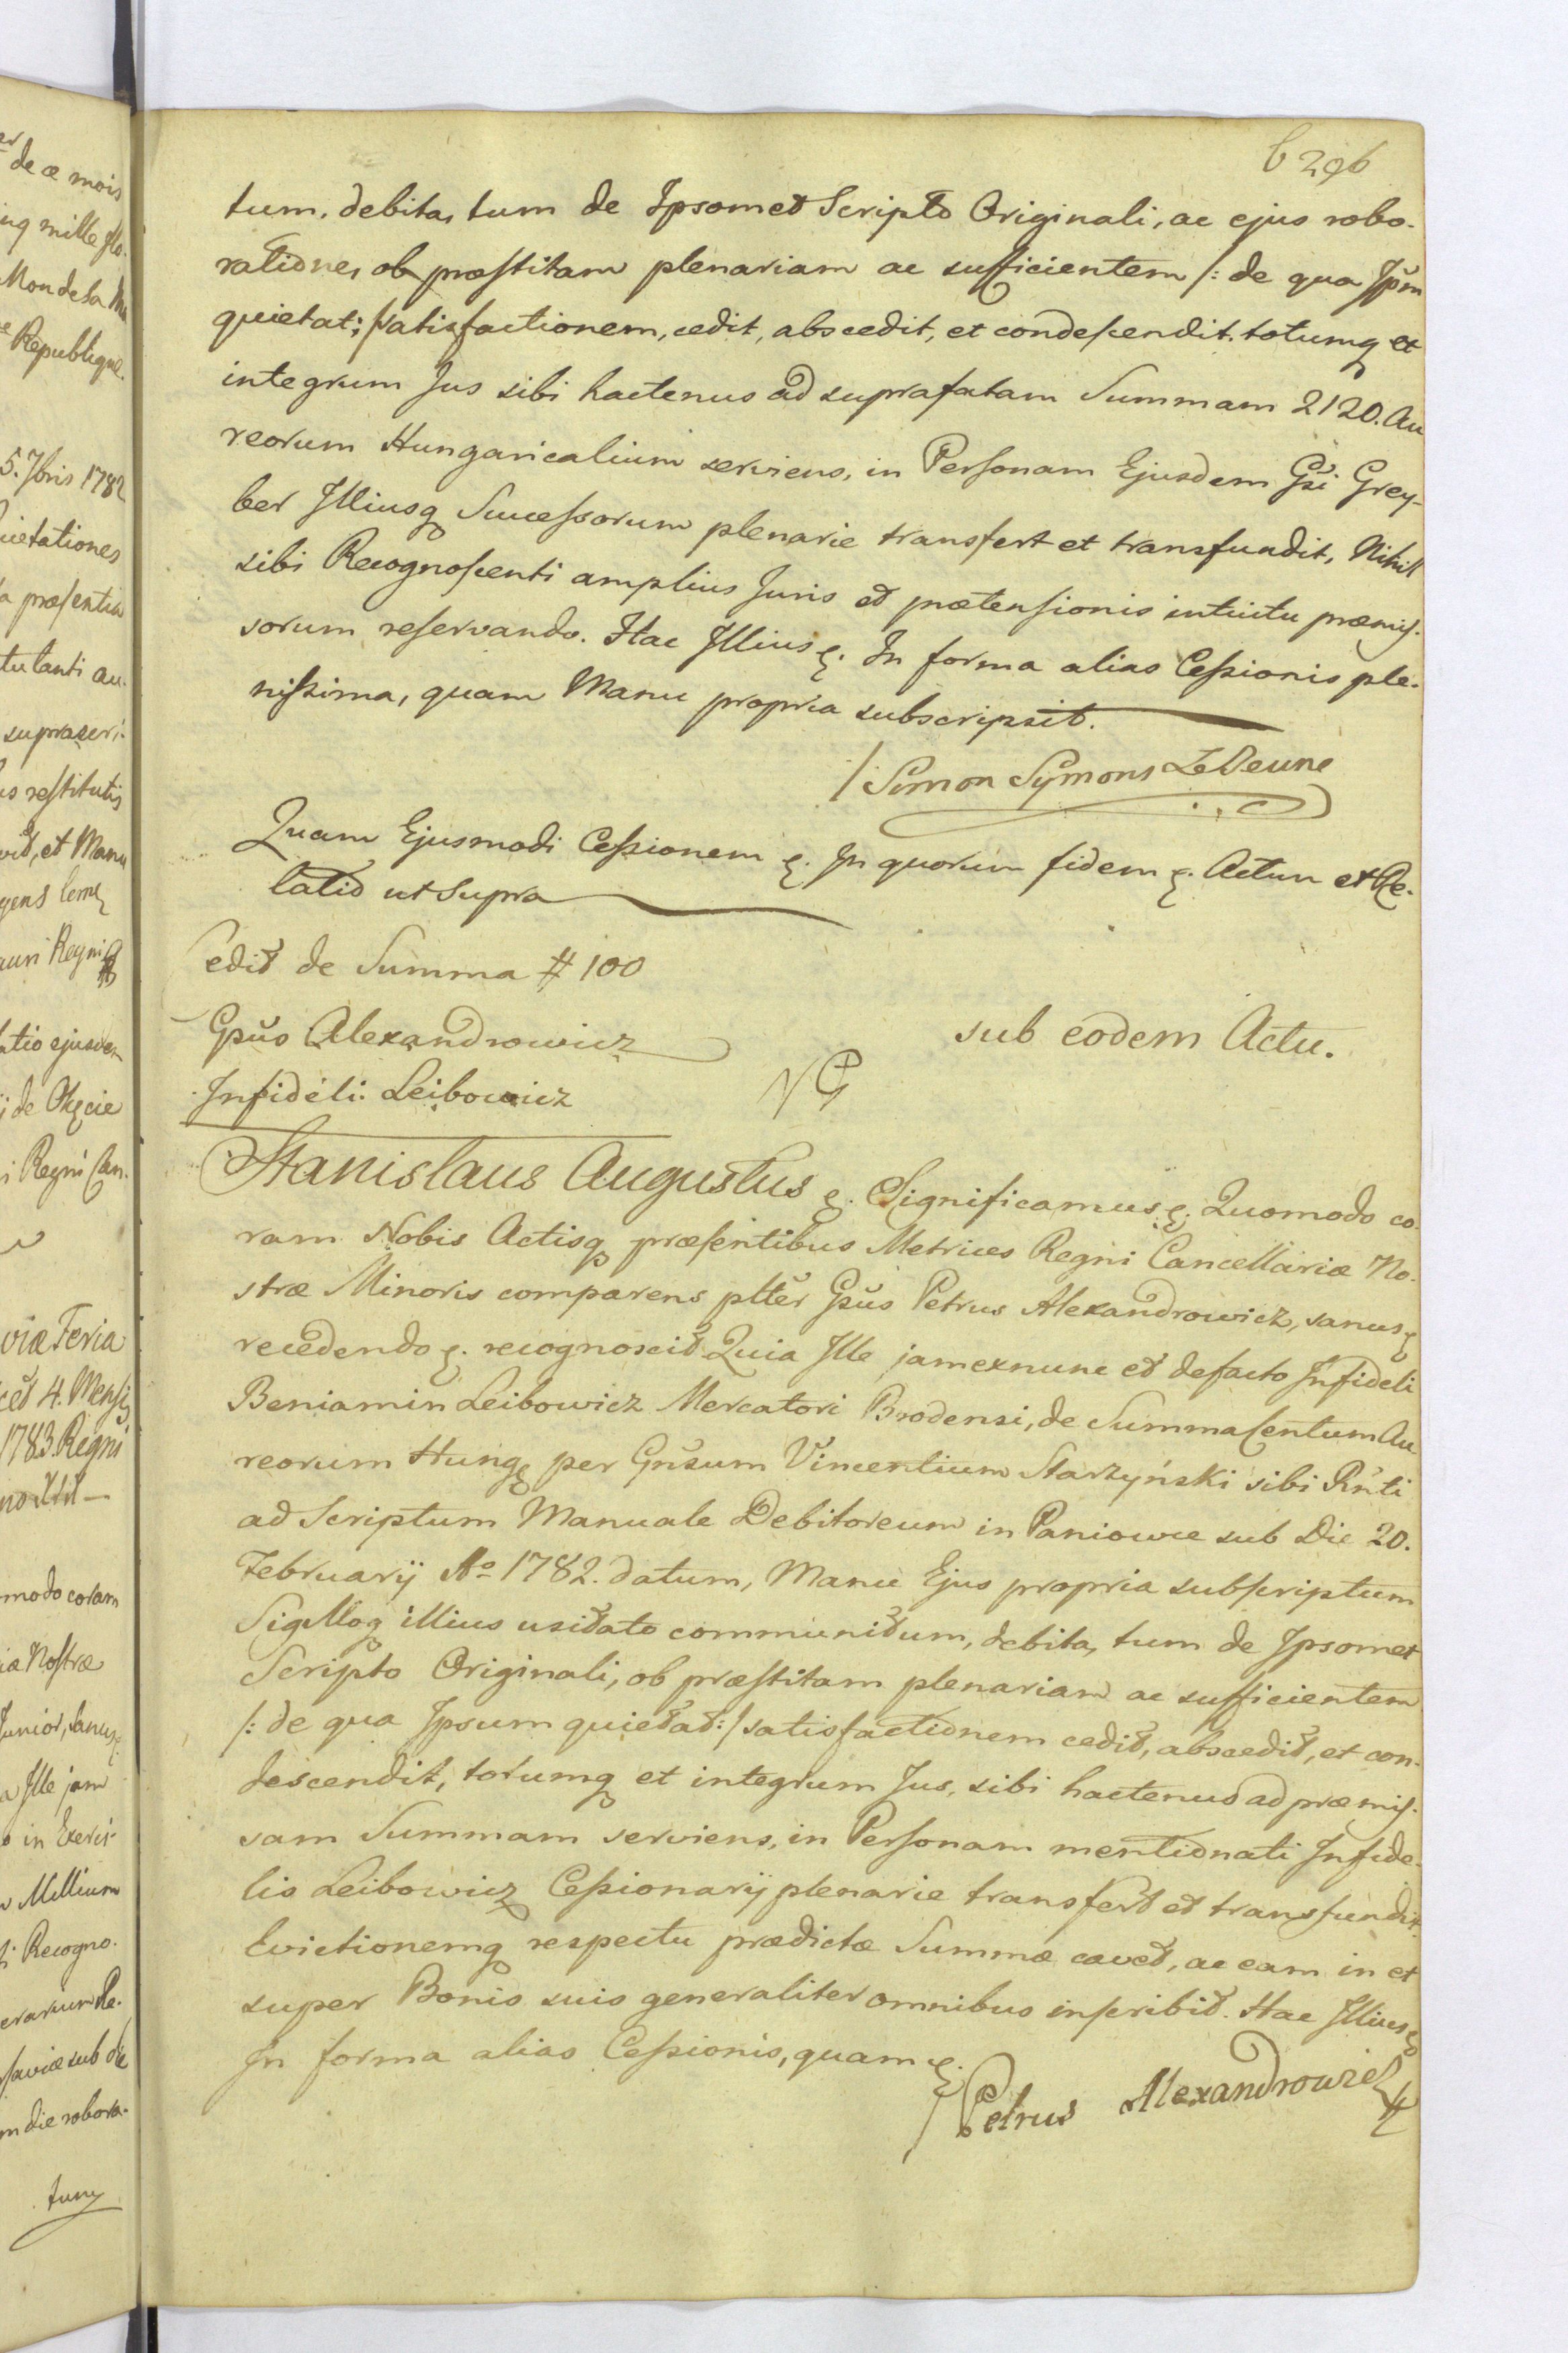 b 296
tum, debita, tum de Ipsomet Scripto Originali, ac ejus robo-
ratione, ob præstitam plenariam ac sufficientem /: de qua Ipsm
quietat :/ satisfactionem, cedit, abscedit, et condescendit. totumq et
integrum Jus sibi hactenus ad suprafatam Summam 2120. Au
reorum Hungaricalium serviens, in Personam Ejusdem Gsi Grey-
ber Illiusq Successorum plenarie transfert et transfundit, Nihil
sibi Recognoscenti amplius Juris et prætensionis intuitu præmis-
sorum reservando. Hac Illius &. In forma alias Cessionis ple-
nissima, quam Manu propria subscripsit.
/: Simon Symons Le Jeune
Quam Ejusmodi Cessionem &. In quorum fidem &. Actum et Re-
latio ut Supra
Cedit de Summa # 100
Gsus Alexandrowicz
sub eodem Actu.
Infideli: Leibowicz
NG
Stanislaus Augustus &. Significamus &. Quomodo co-
ram Nobis Actisq præsentibus Metrices Regni Cancellariæ No-
stræ Minoris comparens pltter Gsus Petrus Alexandrowicz, sanus &
recedendo &. recognoscit Quia Ille jam exnunc et defacto Infideli
Beniamin Leibowicz Mercatori Brodensi, de Summa Centum Au
reorum Hung per Gnsum Vincentium Starzyński sibi Rnti
ad Scriptum Manuale Debitoreum in Paniowce sub Die 20.
Februarij Ao 1782. datum, Manu Ejus propria subscriptum
Sigilloq illius usitato communitum, debita, tum de Ipsomet
Scripto Originali, ob præstitam plenariam ac sufficientem
/: de qua Ipsum quietat :/ satisfactionem cedit, abscedit, et con-
descendit, totumq et integrum Jus, sibi hactenus ad præmis-
sam Summam serviens, in Personam mentionati Infide-
lis Leibowicz Cessionarij plenarie transfert et transfundit.
Evictionemq respectu prædictæ Summæ cavet, ac eam in et
super Bonis suis generaliter omnibus inscribit. Hac Illius &
In forma alias Cessionis, quam &.
/ Petrus Alexandrowicz